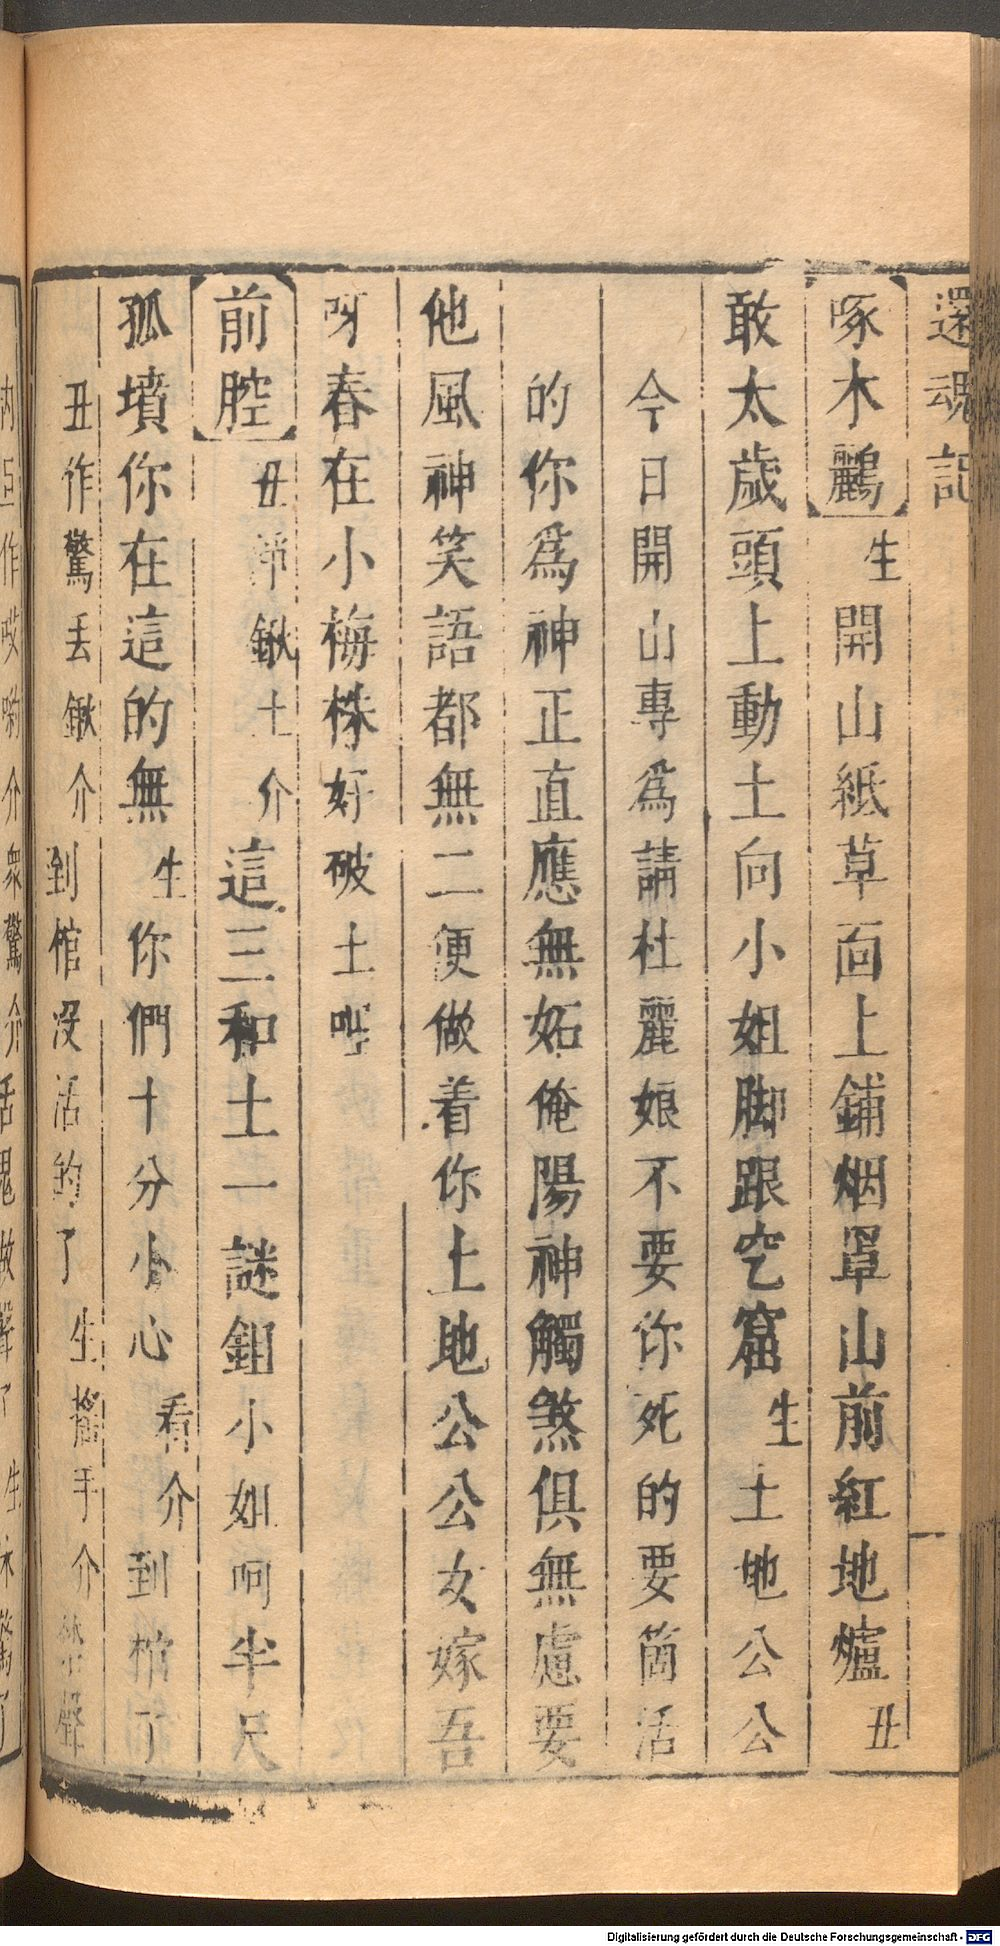 還魂記
啄木鸝 生 開山紙草面上鋪烟罩山前紅地爐 丑
敢太歲頭上動土向小姐脚跟空窟 生 土地公公
今日開山專為請杜麗娘不要你死的要箇活
的你為神正直應無妬俺陽神觸煞俱無慮要
他風神笑語都無二便做着你土地公公女嫁吾
呀春在小梅株好破土呀
前腔 丑淨鍬土介 這三和土一謎鉏小如呵半尺
孤墳你在這的無 生 你們十分小心 看介 到棺了
丑作驚丢鍬介 到棺沒活的了 生搖手介 禁聲
内旦作哎喲介衆驚介活鬼做聲了 生
Digitalisierung gefördert durch die Deutsche Forschungsgemeinschaft - DFG